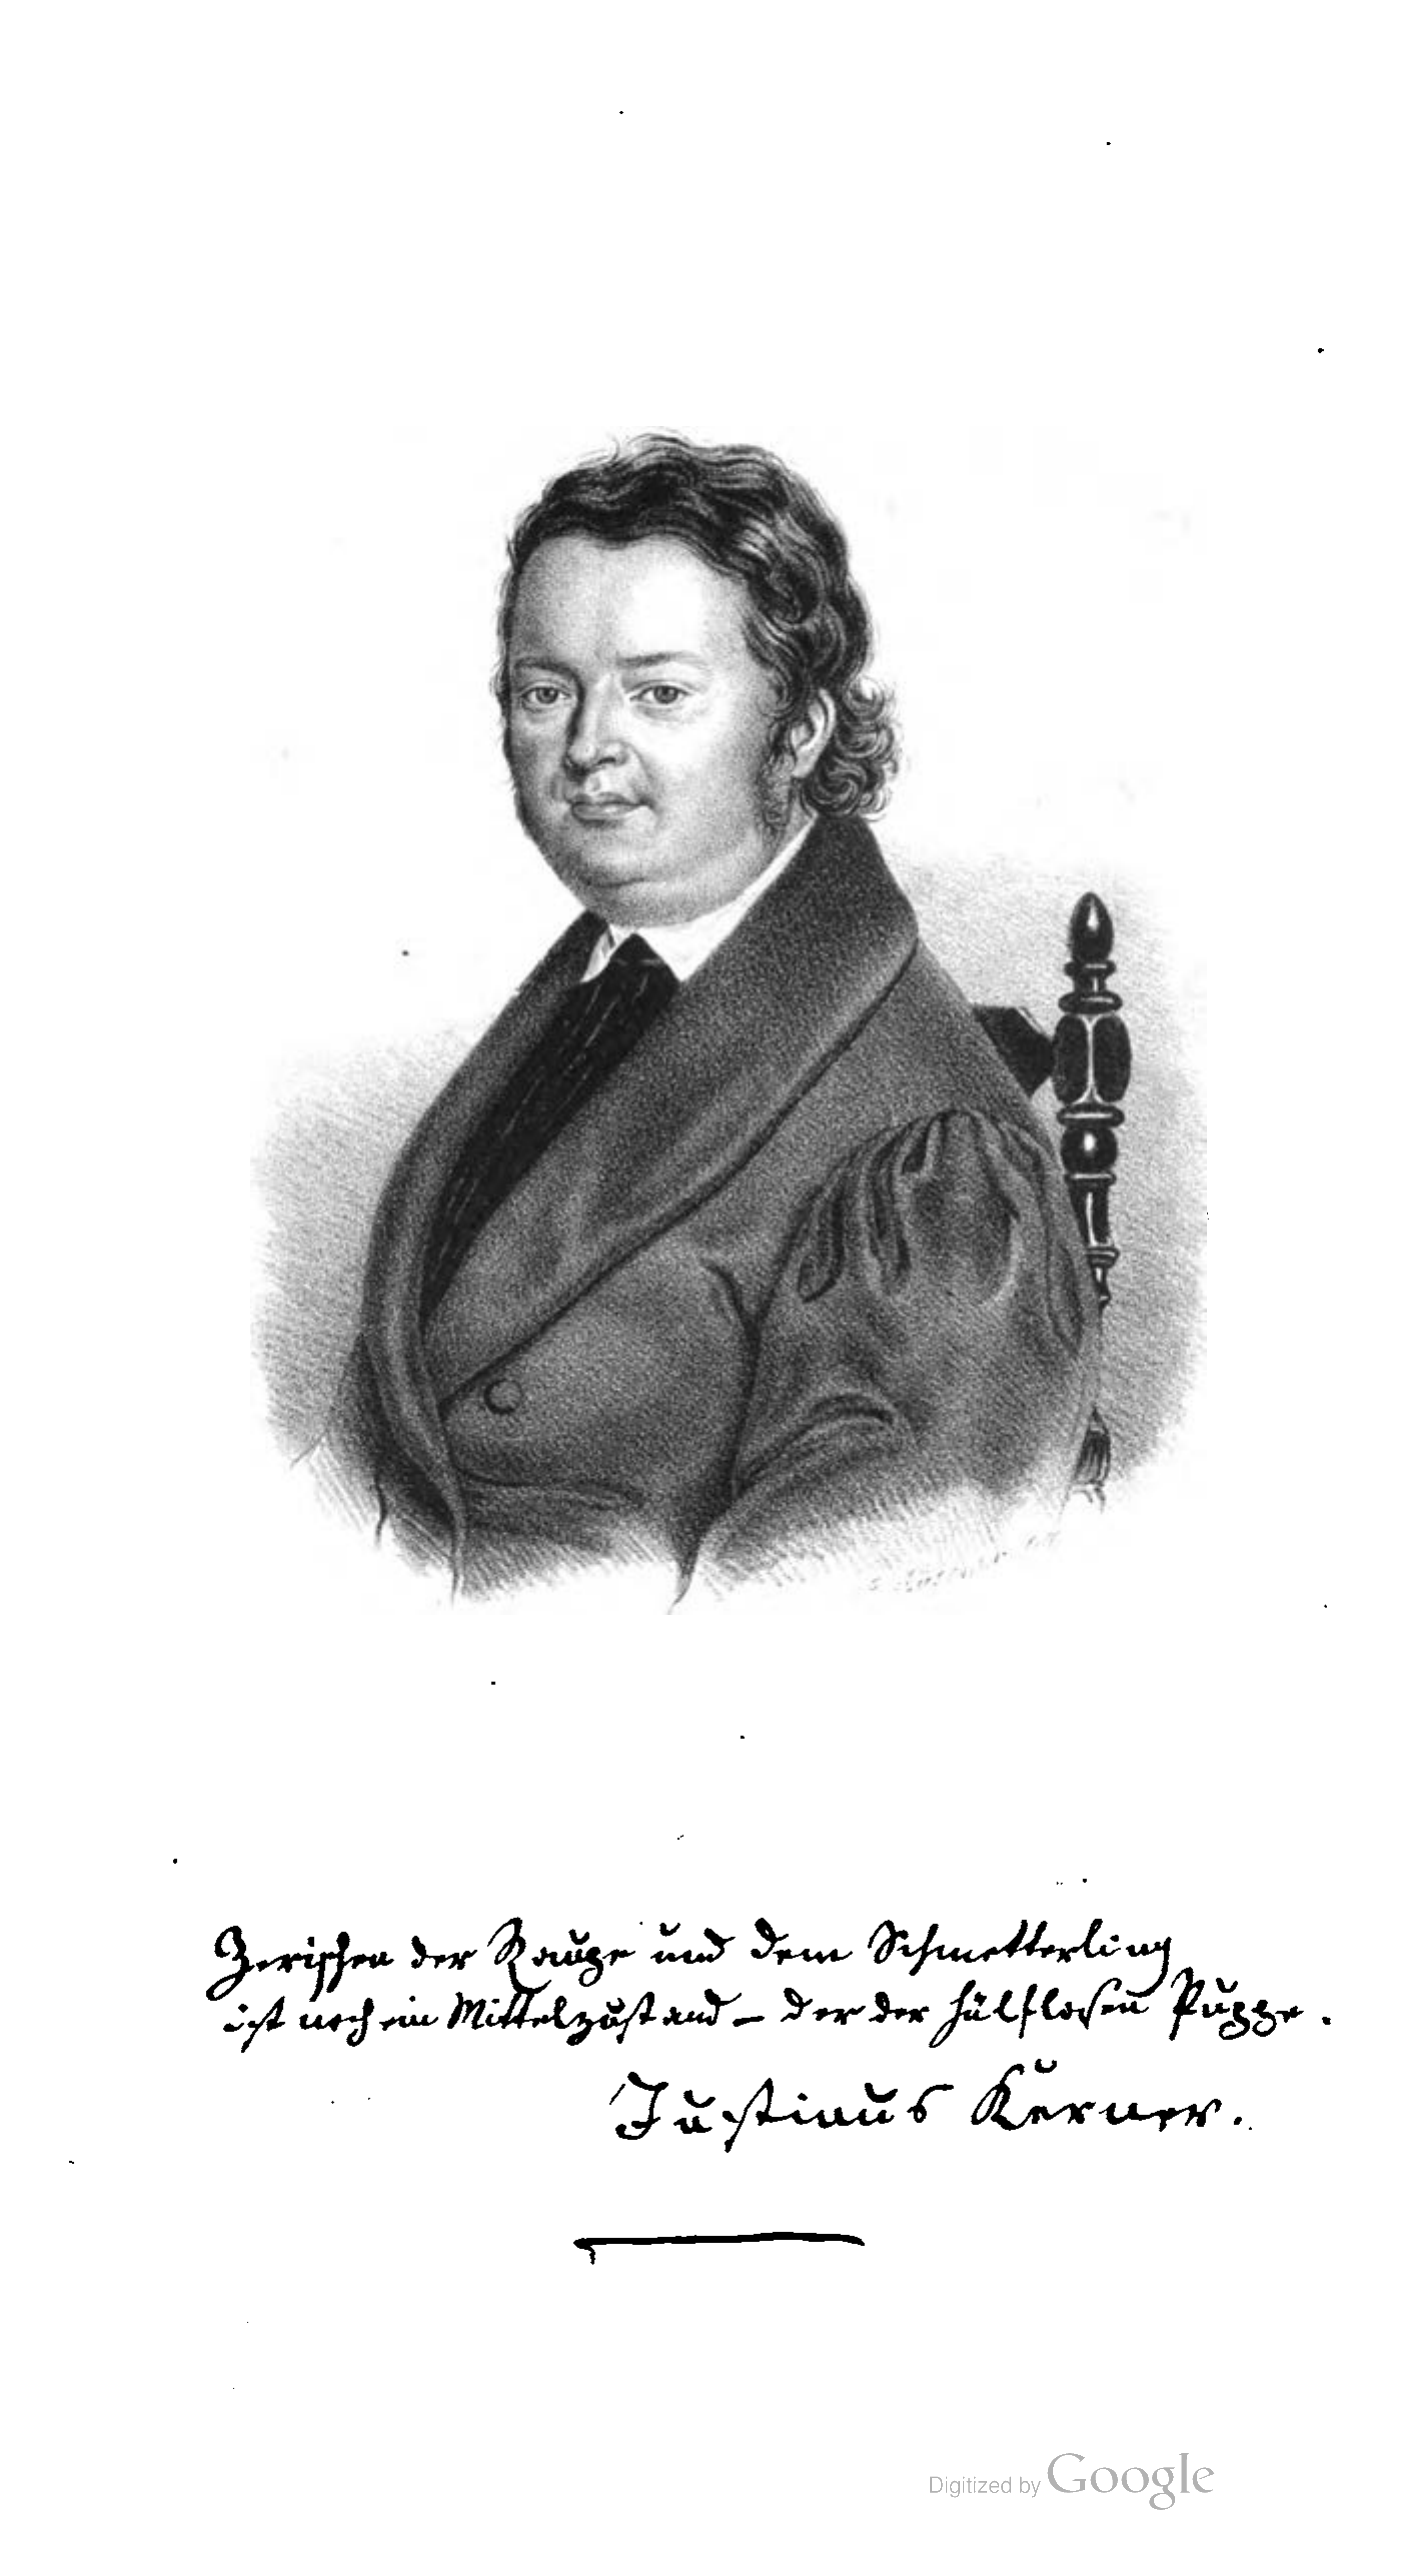 Zwischen der Raupe und dem Schmetterling
ist noch ein Mittelzustand – der der hülflosen Puppe.
Justinus Kerner.
Digitized by Google